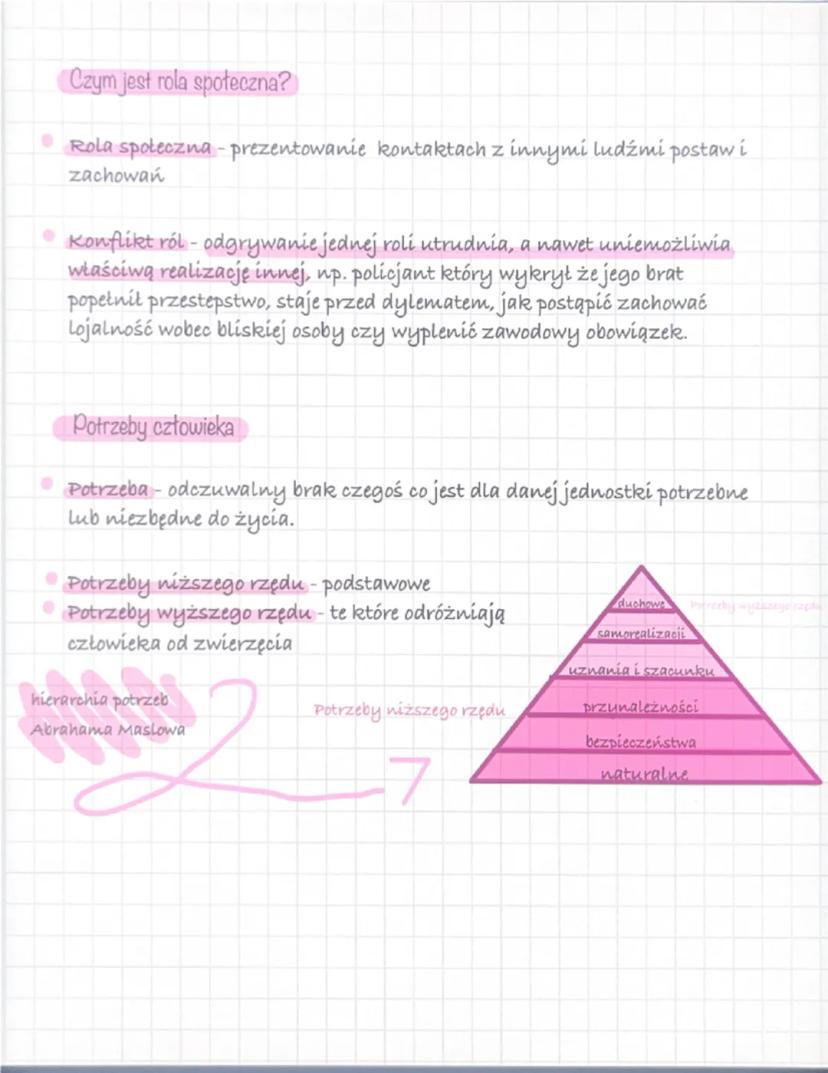 Czym jest rola społeczna?
Rola społeczna - prezentowanie kontaktach z innymi ludźmi postaw i
zachowań
Konflikt ról - odgrywanie jednej roli utrudnia, a nawet uniemożliwia
właściwą realizację innej, np. policjant który wykrył że jego brat
popełnił przestepstwo, staje przed dylematem, jak postąpić zachować
lojalność wobec bliskiej osoby czy wyplenić zawodowy obowiązek.
Potrzeby człowieka
Potrzeba - odczuwalny brak czegoś co jest dla danej jednostki potrzebne
lub niezbędne do życia.
Potrzeby niższego rzędu - podstawowe
Potrzeby wyższego rzędu - te które odróżniają
człowieka od zwierzęcia
hierarchia potrzeb
Abrahama Maslowa
Potrzeby niższego rzędu
Potrzeby wyższego rzędu
duchowe
samorealizacji
uznania i szacunku
przynależności
bezpieczeństwa
naturalne